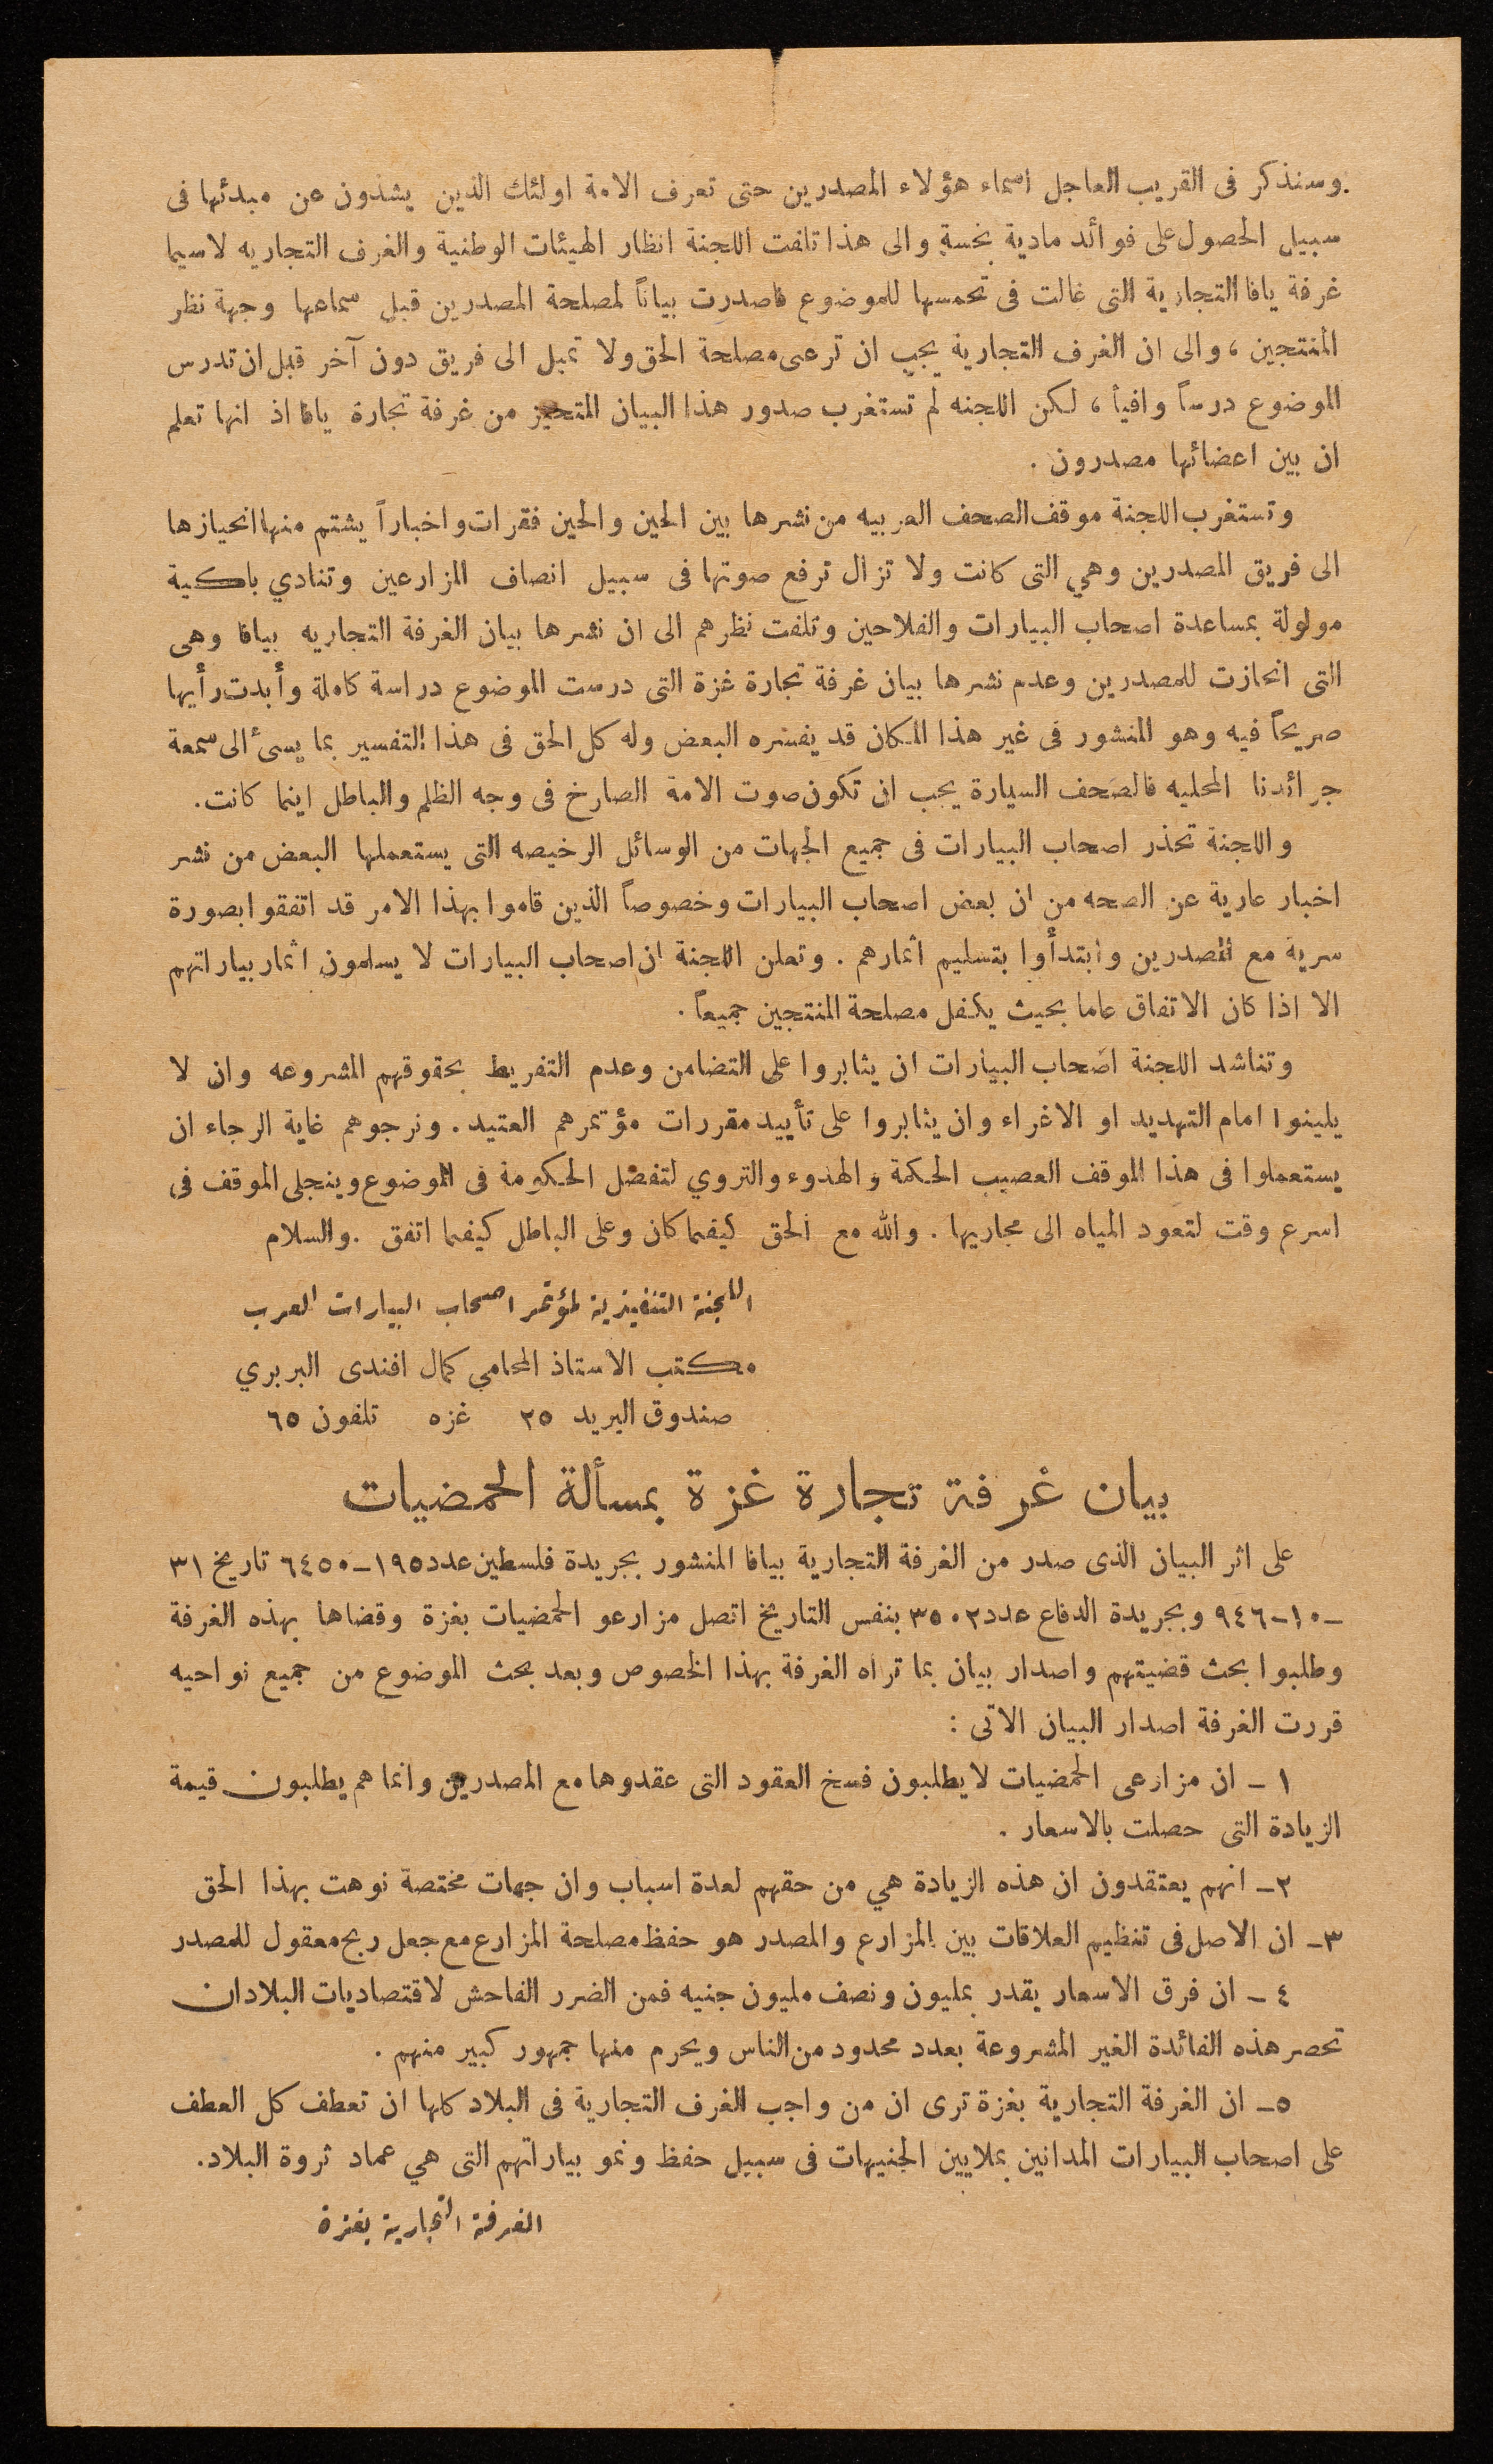 .وسنذكر فى القريب العاجل اسماء هؤلاء المصدرين حتى تعرف الامة اولئك الذين يشذون عن مبدئها فى
سبيل الحصول على فوائد مادية بخسة والى هذا تلفت اللجنة انظار الهيئات الوطنية والغرف التجاريه لاسيما
غرفة يافا التجارية التى غالت فى تحمسها للموضوع فاصدرت بياناً لمصلحة المصدرين قبل سماعها وجهة نظر
المنتجين ، والى ان الغرف التجارية يجب ان ترعى مصلحة الحق ولا تميل الى فريق دون آخر قبل ان تدرس
الموضوع درساً وافياً ، لكن اللجنه لم تستغرب صدور هذا البيان المتحيز من غرفة تجارة يافا اذ انها تعلم
ان بين اعضائها مصدرون .
وتستغرب اللجنة موقف الصحف العربيه من نشرها بين الحين والحين فقرات واخباراً يشتم منها انحيازها
الى فريق المصدرين وهي التى كانت ولا تزال ترفع صوتها فى سبيل انصاف المزارعين وتنادي باكية
مولولة بمساعدة اصحاب البيارات والفلاحين وتلفت نظرهم الى ان نشرها بيان الغرفة التجاريه بيافا وهى
التى انحازت للمصدرين وعدم نشرها بيان غرفة تجارة غزة التى درست الموضوع دراسة كاملة وأبدت رأيها
صريحاً فيه وهو المنشور فى غير هذا المكان قد يفسره البعض وله كل الحق فى هذا التفسير بما يسئ الى سمعة
جرائدنا المحليه فالصحف السيارة يجب ان تكون صوت الامة الصارخ فى وجه الظلم والباطل اينما كانت.
واللجنة تحذر اصحاب البيارات فى جميع الجهات من الوسائل الرخيصه التى يستعملها البعض من نشر
اخبار عارية عن الصحه من ان بعض اصحاب البيارات وخصوصاً الذين قاموا بهذا الامر قد اتفقوا بصورة
سرية مع المصدرين وابتدأوا بتسليم اثمارهم . وتعلن اللجنة ان اصحاب البيارات لا يسلمون اثمار بياراتهم
الا اذا كان الاتفاق عاما بحيث يكفل مصلحة المنتجين جميعاً .
وتناشد اللجنة اصحاب البيارات ان يثابروا على التضامن وعدم التفريط بحقوقهم المشروعه وان لا
يلينوا امام التهديد او الاغراء وان يثابروا على تأييد مقررات مؤتمرهم العتيد . ونرجوهم غاية الرجاء ان
يستعملوا فى هذا الموقف العصيب الحكمة والهدوء والتروي لتفصل الحكومة فى الموضوع وينجلى الموقف فى
اسرع وقت لتعود المياه الى مجاريها . والله مع الحق كيفما كان وعلى الباطل كيفما اتفق .والسلام
اللجنة التنفيذية لمؤتمر اصحاب البيارات العرب
مكتب الاستاذ المحامي كمال افندى البربري
صندوق البريد ٢٥ غزه تلفون ٦٥
بيان غرفة تجارة غزة بمسألة الحمضيات
على اثر البيان الذى صدر من الغرفة التجارية بيافا المنشور بجريدة فلسطين عدد ١٩٥ــ٦٤٥٠ تاريخ ٣١
ــ١٠ــ٩٤٦ وبجريدة الدفاع عدد ٣٥٠٢ بنفس التاريخ اتصل مزارعو الحمضيات بغزة وقضاها بهذه الغرفة
وطلبوا بحث قضيتهم واصدار بيان بما تراه الغرفة بهذا الخصوص وبعد بحث الموضوع من جميع نواحيه
قررت الغرفة اصدار البيان الاتى :
١ ــ ان مزارعى الحمضيات لا يطلبون فسخ العقود التى عقدوها مع المصدرين وانما هم يطلبون قيمة
الزيادة التى حصلت بالاسعار .
٢ــ انهم يعتقدون ان هذه الزيادة هي من حقهم لعدة اسباب وان جهات مختصة نوهت بهذا الحق
٣ــ ان الاصل فى تنظيم العلاقات بين المزارع والمصدر هو حفظ مصلحة المزارع مع جعل ربح معقول للمصدر
٤ ــ ان فرق الاسعار يقدر بمليون ونصف مليون جنيه فمن الضرر الفاحش لاقتصاديات البلاد ان
تحصر هذه الفائدة الغير المشروعة بعدد محدود من الناس ويحرم منها جمهور كبير منهم .
٥ــ ان الغرفة التجارية بغزة ترى ان من واجب الغرف التجارية فى البلاد كلها ان تعطف كل العطف
على اصحاب البيارات المدانين بملايين الجنيهات فى سبيل حفظ ونمو بياراتهم التى هي عماد ثروة البلاد.
الغرفة التجارية بغزة